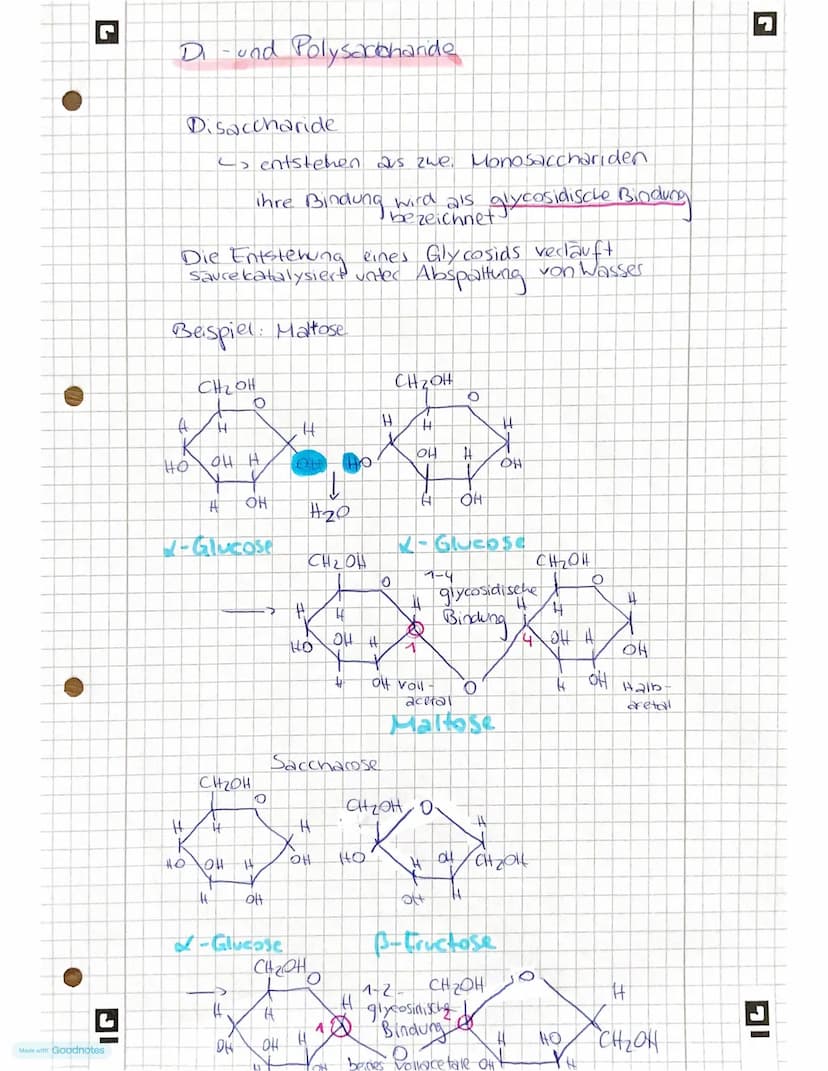 Di - und Polysaccharide
Disaccharide
↳ entstehen aus zwei Monosacchariden
ihre Bindung wird als glycosidische Bindung
bezeichnet
Die Entstehung eines Glycosids verläuft
säurekatalysiert unter Abspaltung von Wasser
Beispiel: Maltose
CH2OH CH2OH
O O
H H H H H H
HO OH H OH HO OH H OH
H OH H2O H OH
α-Glucose α-Glucose
CH2OH 1-4 CH2OH
O glycosidische O
H H H Bindung H H H
HO OH H 1 4 OH H OH
H OH Voll- O H OH Halb-
acetal acetal
Maltose
Saccharose
CH2OH
O CH2OH O
H H H H
HO OH H OH HO H OH CH2OH
H OH OH H
α-Glucose β-Fructose
CH2OH O 1-2- CH2OH O H
H H H glycosinische 2
OH OH H 1 Bindung H HO CH2OH
O OH H
beides Vollacetale
Made with Goodnotes